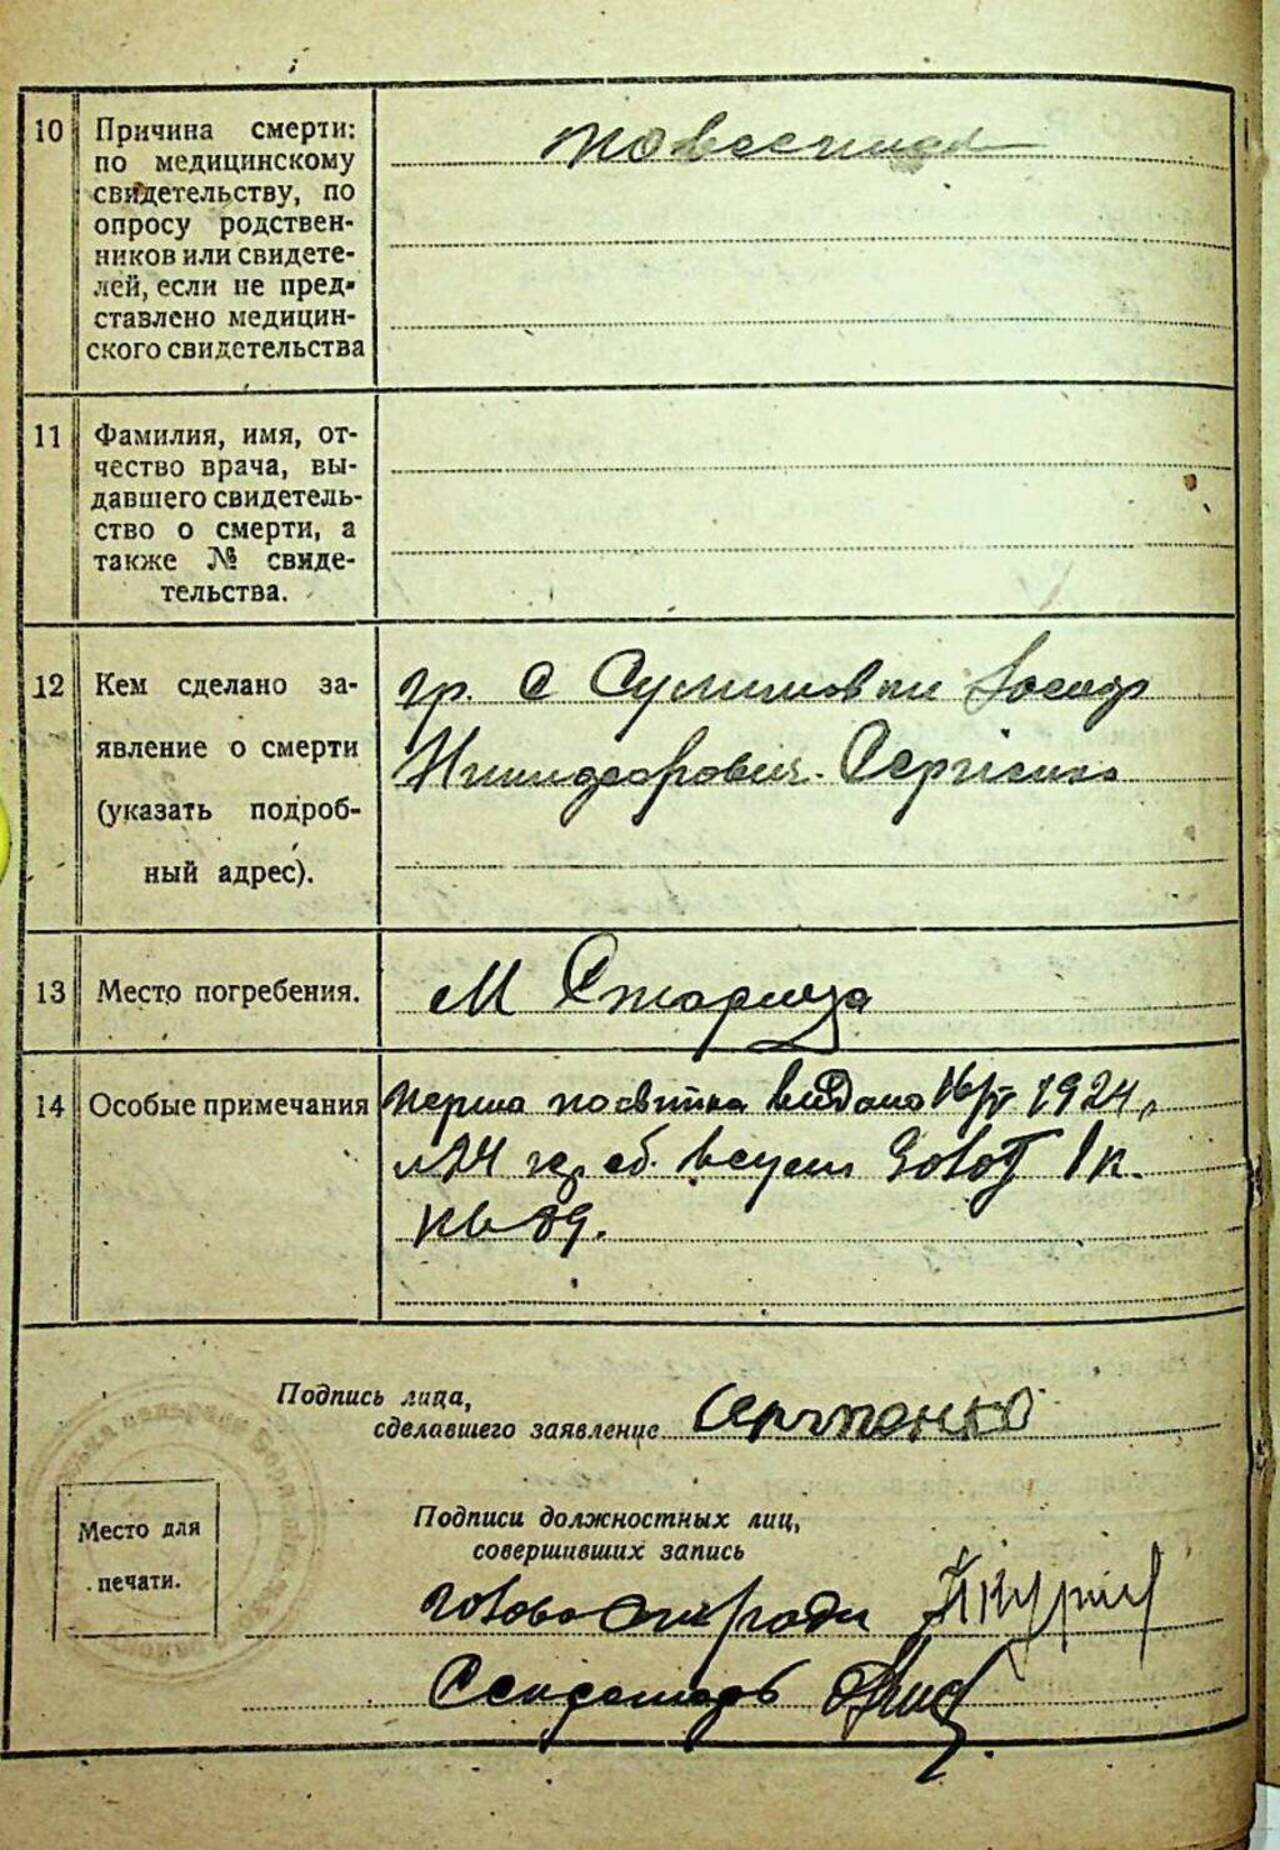 10 Причина смерти:
по медицинскому
свидетельству, по
опросу родствен-
ников или свидете-
лей, если не пред-
ставлено медицин-
ского свидетельства
11 Фамилия, имя, от-
чество врача, вы-
давшего свидетель-
ство о смерти, а
также № свиде-
тельства.
12 Кем сделано за-
явление о смерти
(указать подроб-
ный адрес).
гр. с Сулимовки
Никифорович Сергієнко
13 Место погребения.
М Стариця
14 Особые примечания
перша посвітка видано 16/IV 1924
Подпись лица,
сделавшего заявление Сергиенко
Место для
печати.
Подписи должностных лиц,
совершивших запись
голова
Секретарь